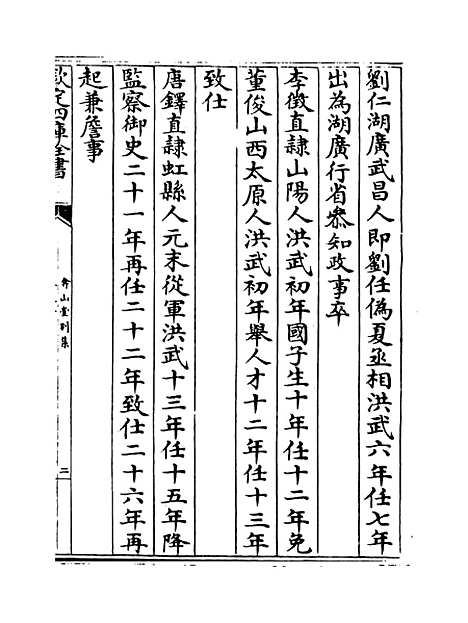 劉仁湖廣武昌人即劉任偽夏丞相洪武六年任七年
出為湖廣行省叅知政事卒
李徴直隷山陽人洪武初年國子生十年任十二年免
董俊山西太原人洪武初年舉人才十二年任十三年
致仕
唐鐸直隷虹縣人元末從軍洪武十三年任十五年降
監察御史二十一年再任二十二年致仕二十六年再
起兼詹事
欽定四庫全書
弇山堂别集
三